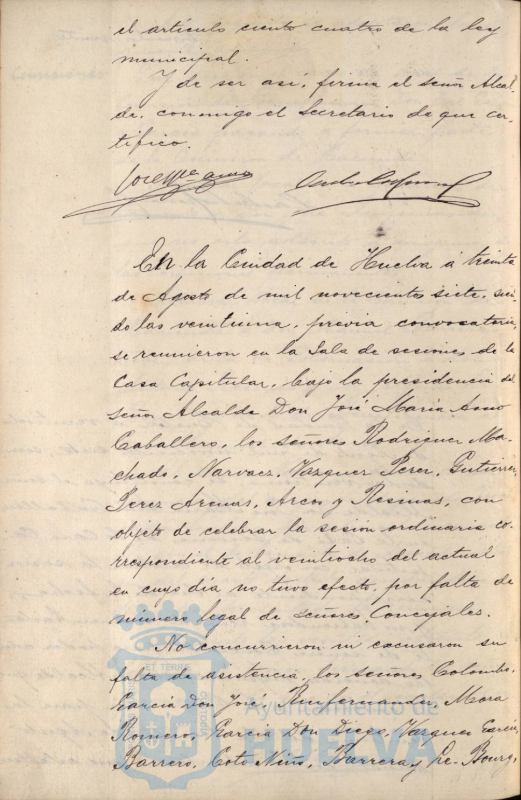 el artículo ciento cuatro de la ley
municipal.
Y de ser así, firma el señor Alcal-
de, conmigo el Secretario de que cer-
tifico.
En la Ciudad de Huelva á treinta
de Agosto de mil novecientos siete, sien-
do las veintiuna, previa convocatoria,
se reunieron en la Sala de sesiones de la
Casa Capitular, bajo la presidencia del
señor Alcalde Don José María Amo
Caballero, los señores Rodriguez Ma-
chado, Narvaez, Vazquez Perez, Gutierrez,
Perez Arenas, Arcos y Resinas, con
objeto de celebrar la sesión ordinaria co-
rrespondiente al veintiocho del actual
en cuyo día no tuvo efecto, por falta de
número legal de señores Concejales.
No concurrieron ni excusaron su
falta de asistencia, los señores Colombo,
García Don José, Mora
Romero, García Don Diego, Vazquez García,
Barrero, Coto Niño, Barrera y Le-Bourg,
Ayuntamiento de
HUELVA